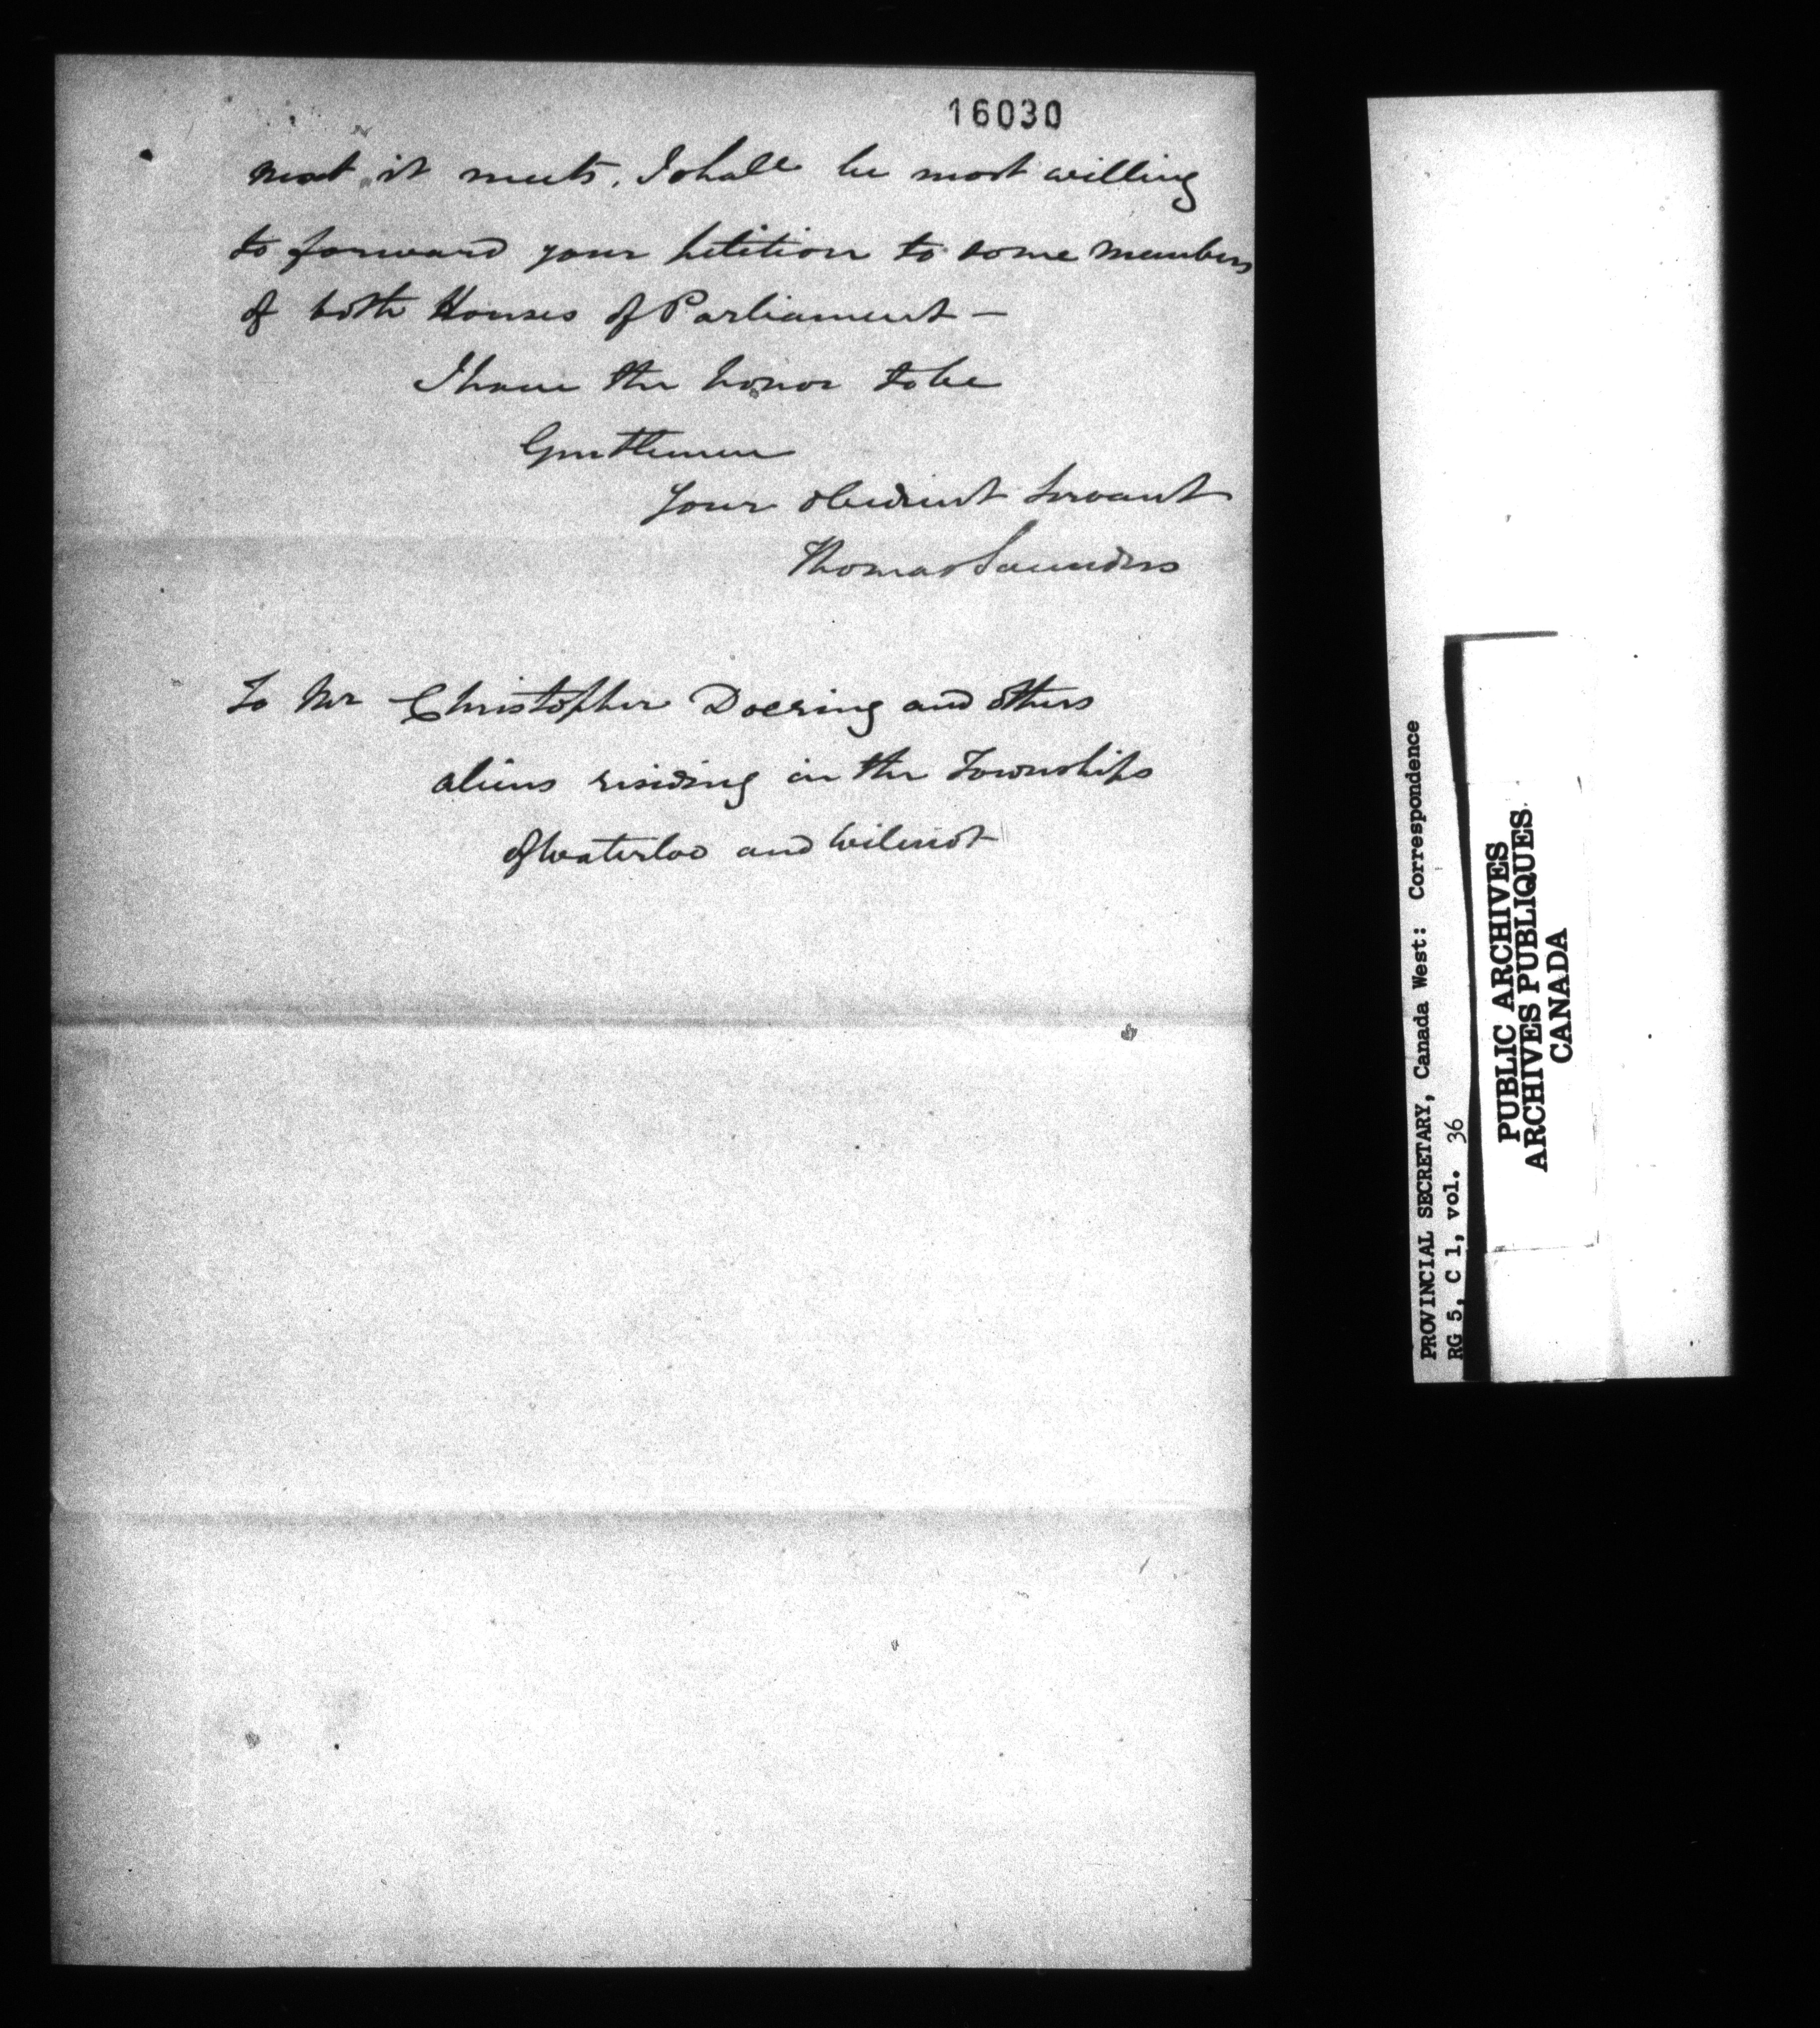 16030
next it meets. I shall be most willing
to forward your petition to some members
of both Houses of Parliament —
I have the honor to be
Gentlemen
Your obedient Servant
Thomas Saunders
To Mr Christopher Doering and others
aliens residing in the Townships
of Waterloo and Wilmot
PROVINCIAL SECRETARY, Canada West: Correspondence
RG 5, C 1, vol. 36
PUBLIC ARCHIVES
ARCHIVES PUBLIQUES
CANADA